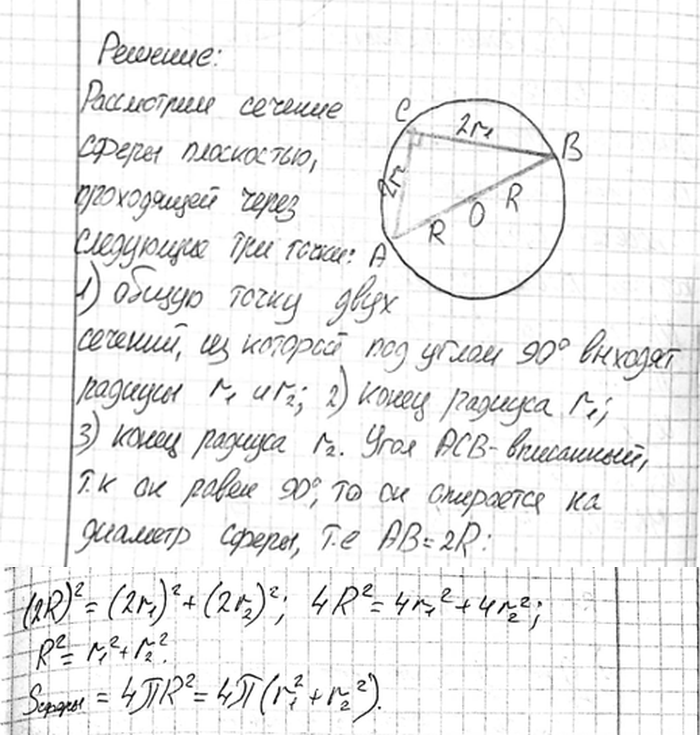 Решение:
Рассмотрим сечение
сферы плоскостью,
проходящей через
следующие три точки:
1) общую точку двух
сечений, из которой под углом 90° выходят
радиусы r₁ и r₂; 2) конец радиуса r₁;
3) конец радиуса r₂. Угол ACB- вписанный,
т.к он равен 90°, то он опирается на
диаметр сферы, т.е AB=2R:
C
2r₁
B
2r
R
O
R
A
(2R)²=(2r₁)²+(2r₂)²; 4R²=4r₁²+4r₂²;
R²=r₁²+r₂².
Sсферы = 4πR²=4π(r₁²+r₂²).